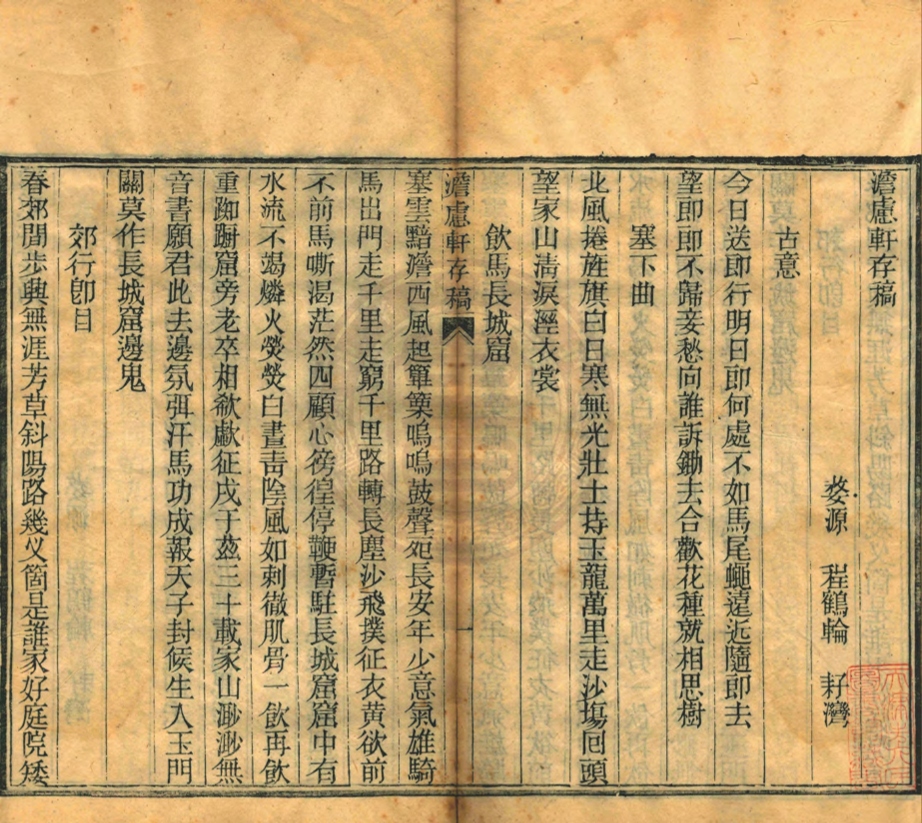 澹慮軒存稿
婺源　程鶴輪　耔灣
古意
今日送即行明日即何處不如馬尾蠅遠近隨即去
望即即不歸妾愁向誰訴鋤去合歡花種就相思樹
塞下曲
北風捲旌旗白日寒無光壯士持玉龍萬里走沙塲囘頭
望家山淸淚溼衣裳
飮馬長城窟
澹慮軒存稿
一
塞雲黯澹西風起篳篥嗚嗚鼓聲死長安年少意氣雄騎
馬出門走千里走窮千里路轉長塵沙飛撲征衣黄欲前
不前馬嘶渴茫然四顧心徬徨停鞭暫駐長城窟窟中有
水流不竭燐火熒熒白晝靑陰風如刺徹肌骨一飮再飮
重踟蹰窟旁老卒相欷歔征戍于兹三十載家山渺渺無
音書願君此去邊氛弭汗馬功成報天子封候生入玉門
關莫作長城窟邊鬼
郊行卽目
春郊間步興無涯芳草斜陽路幾义箇是誰家好庭院矮